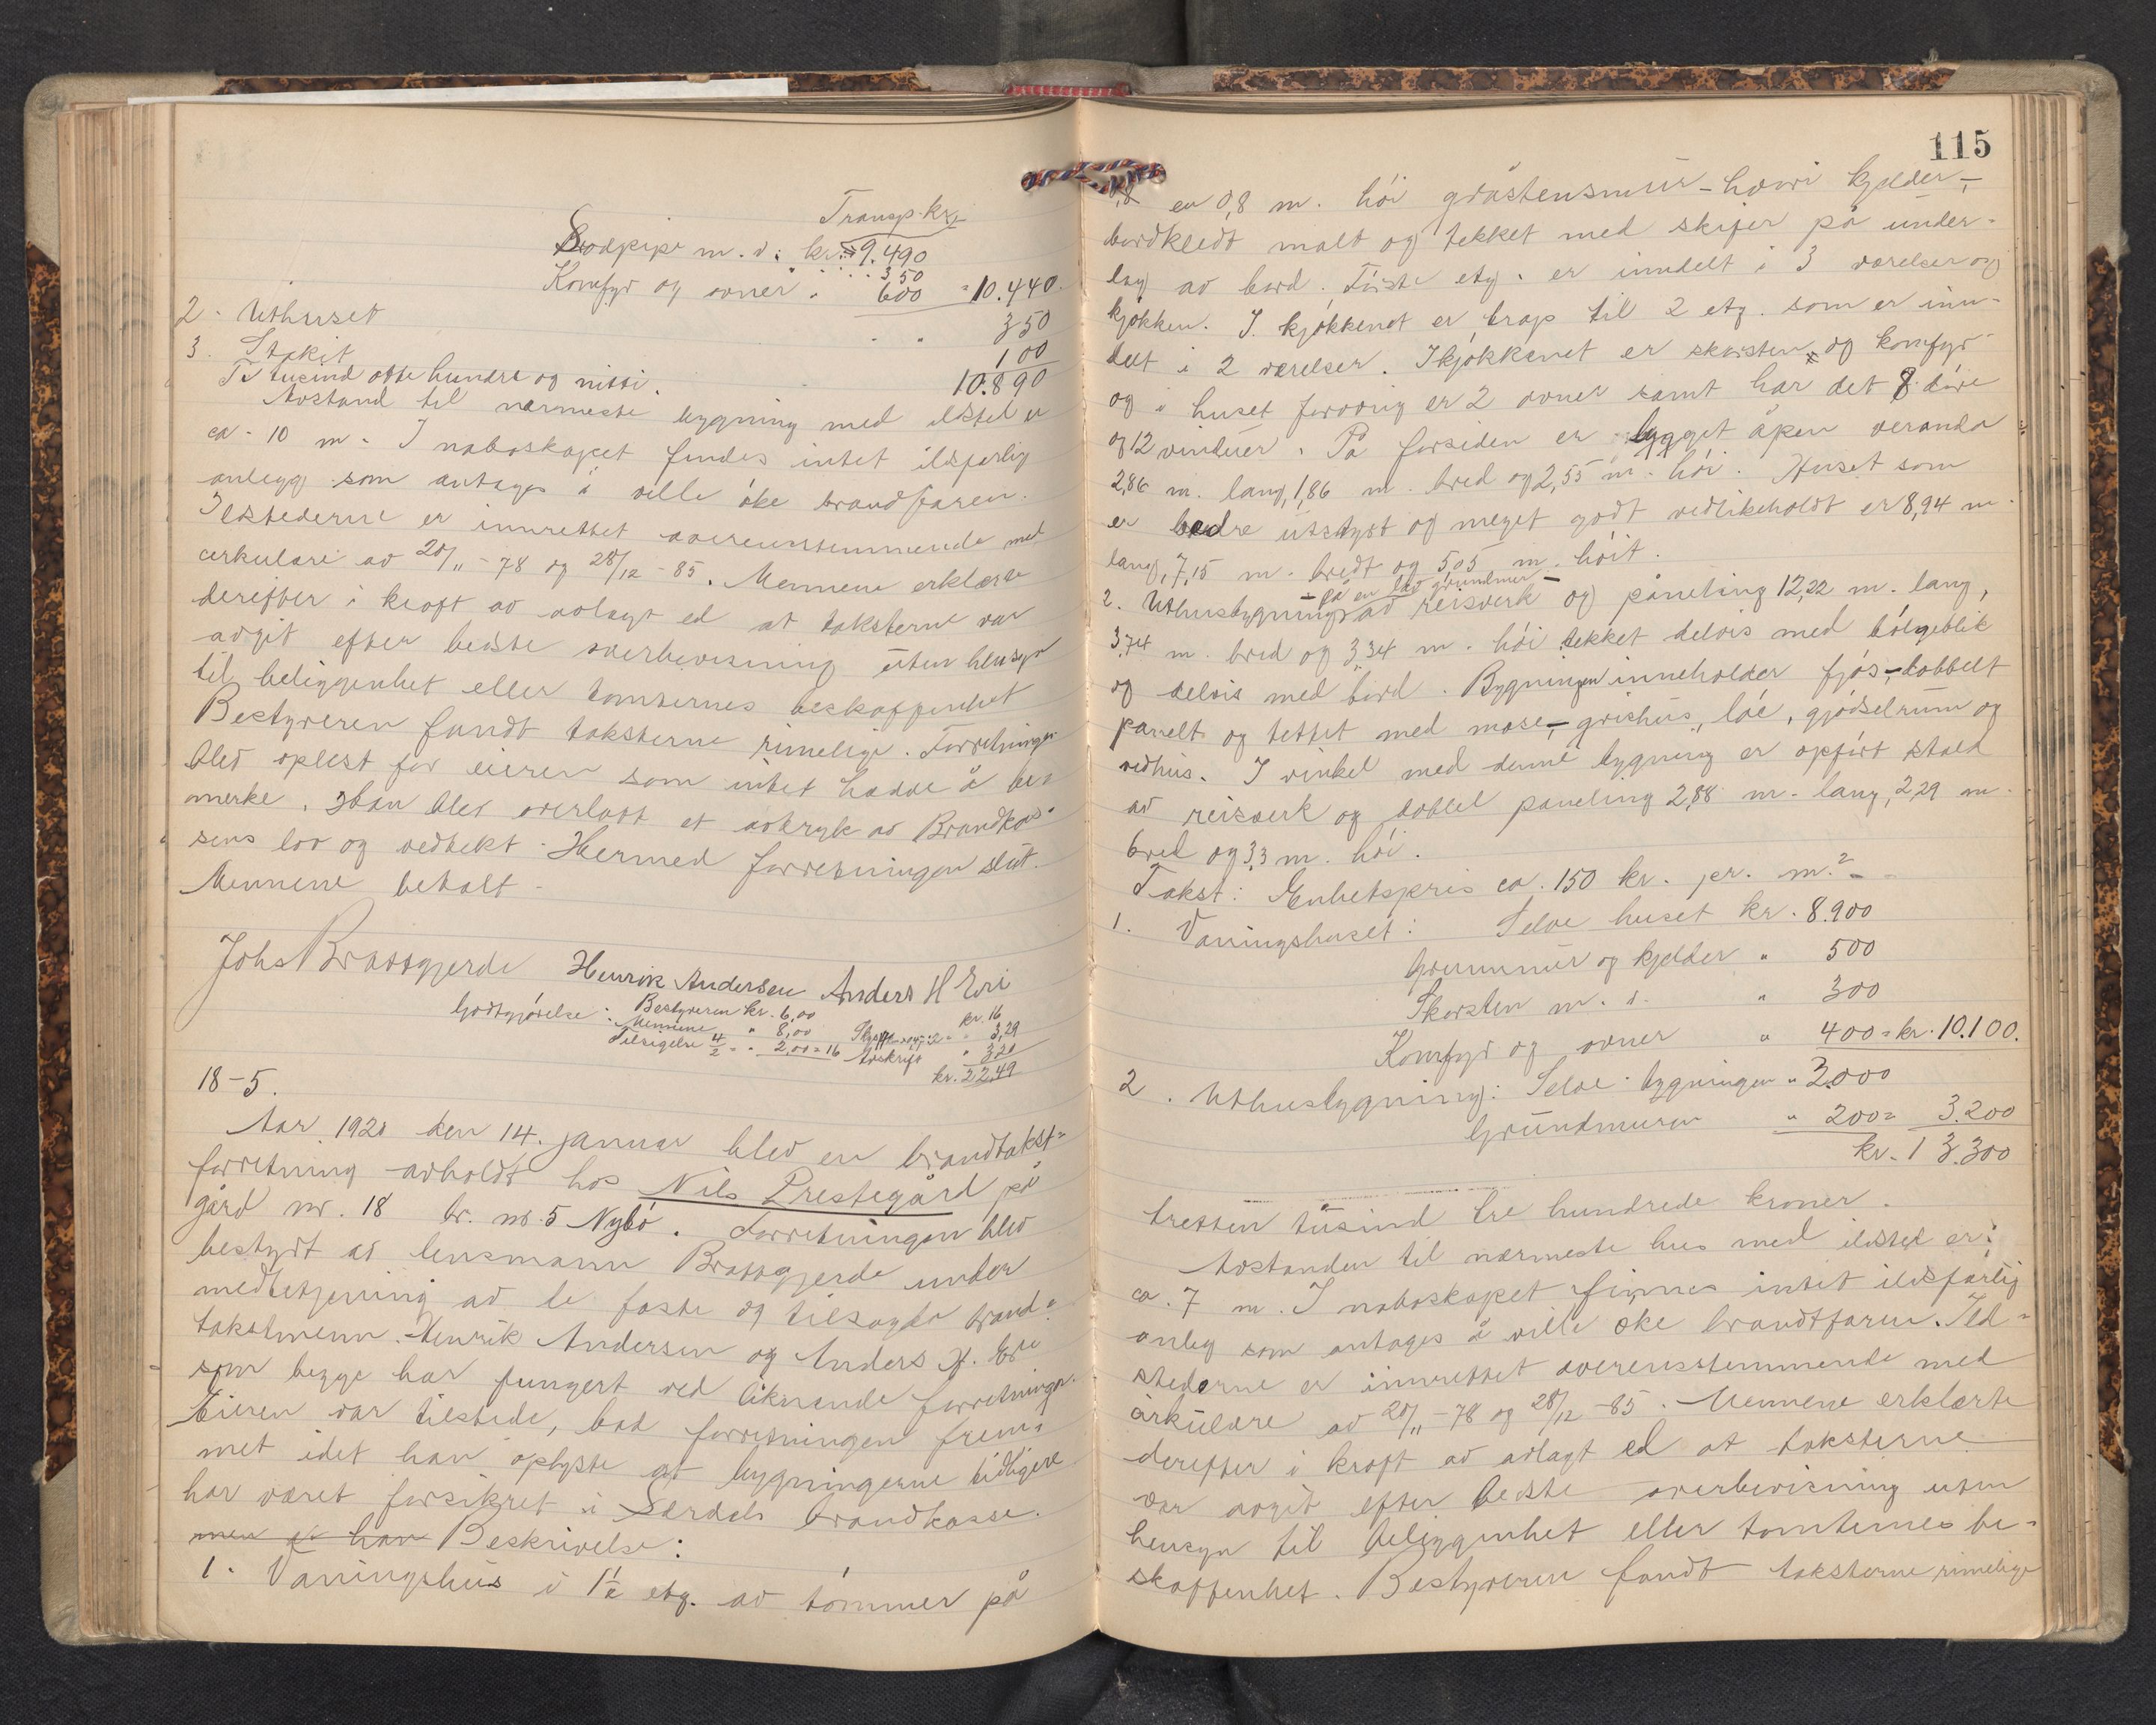 Transp. kr.
m. v: kr. 9.490
350
Komfyr og ovner " 600 = 10.440.
2. Uthuset " " 350
3. Stakit 100
Ti tusind otte hundre og nitti. 10.890
Avstand til nærmeste bygning med ilsted er
ca. 10 m. I naboskapet findes intet ildsfarlig
anlegg som antages å ville øke brandfaren.
Ilstederne er innrettet overensstemmende med
cirkulære av 20/11 - 78 og 28/12 - 85. Mennene erklærte
derefter i kraft av avlagt ed at taksterne var
avgit efter bedste overbevisning uten hensyn
til beliggenhet eller tomternes beskaffenhet
Bestyreren fandt taksterne rimelige. Forretningen
blev oplest for eieren som intet hadde å be-
merke. Han blev overlatt et avtryk av Brandkas-
sens lov og vedtekt. Hermed forretningen slut.
Mennene betalt.
Johs Brattgjerde Henrik Andersen Anders H Eri
Godtgjørelse: Bestyreren kr. 6,00 kr. 16
Mennene " 8,00 " 3,29
Tilsigelse 4/2 " 2,00 = 16 Avskrift " 3,20
kr. 22,49
18-5.
Aar 1921 den 14. januar blev en brandtakst=
forretning avholdt hos Nils Prestegård på
gård nr. 18 br. nr. 5 Nybø. Forretningen blev
bestyrt av lensmann Brattgjerde under
medbetjening av de faste og tilsagte brand=
takstmenn Henrik Andersen og Anders H. Eri
som begge har fungert ved liknande forretninger.
Eieren var tilstede, bad forretningen frem=
met idet han oplyste at bygningerne tidligere
har været forsikret i Lærdals brandkasse.
men er han Beskrivelse:
1. Våningshus i 1½ etg. av tømmer på
115
0,8 en 0,8 m. høi gråstensmur - hvori kjelder, -
bordkledt malt og tekket med skifer på under-
lag av bord. Første etg. er inndelt i 3 værelser og
kjøkken. I kjøkkenet er trap til 2 etg. som er inn-
delt i 2 værelser. I kjøkkenet er skorsten og komfyr
og i huset forøvrig er 2 ovner samt har det 8 døre
og 12 vinduer. På forsiden er bygget åpen veranda
2,86 m. lang, 1,86 m. bred og 2,55 m. høi. Huset som
er bedre utstyrt og meget godt vedlikeholdt er 8,94 m.
lang, 7,15 m. bredt og 5,05 m. høit.
- på en lav grundmur -
2. Uthusbygning av reisverk og paneling 12,22 m. lang,
3,74 m. bred og 3,34 m. høi tekket delvis med bølgeblik
og delvis med bord. Bygningen inneholder fjøs, - dobbelt
panelt og tettet med mose, - grishus, løe, gjødselrum og
vedhus. I vinkel med denne bygning er opført stald
av reisverk og dobbel paneling 2,88 m. lang, 2,29 m.
bred og 3,3 m. høi.
Takst: Enhetspris ca. 150 kr. pr. m.² -
1. Våningshuset: Selve huset kr. 8.900
Grunnmur og kjelder " 500
Skorsten m. v. " 300
Komfyr og ovner " 400 = kr. 10.100.
2. Uthusbygning: Selve bygningen " 3.000
Grundmuren " 200 = 3.200
kr. 13.300
tretten tusind tre hundrede kroner.
Avstanden til nærmeste hus med ilsted er
ca. 7 m. I naboskapet finnes intet ildsfarlig
anleg som antages å ville øke brandtfaren. Ild-
stederne er innrettet overensstemmende med
cirkulære av 20/11 - 78 og 28/12 - 85. Mennene erklærte
derefter i kraft av avlagt ed at taksterne
var avgit efter bedste overbevisning uten
hensyn til beliggenhet eller tomternes be-
skaffenhet. Bestyreren fandt taksterne rimelige